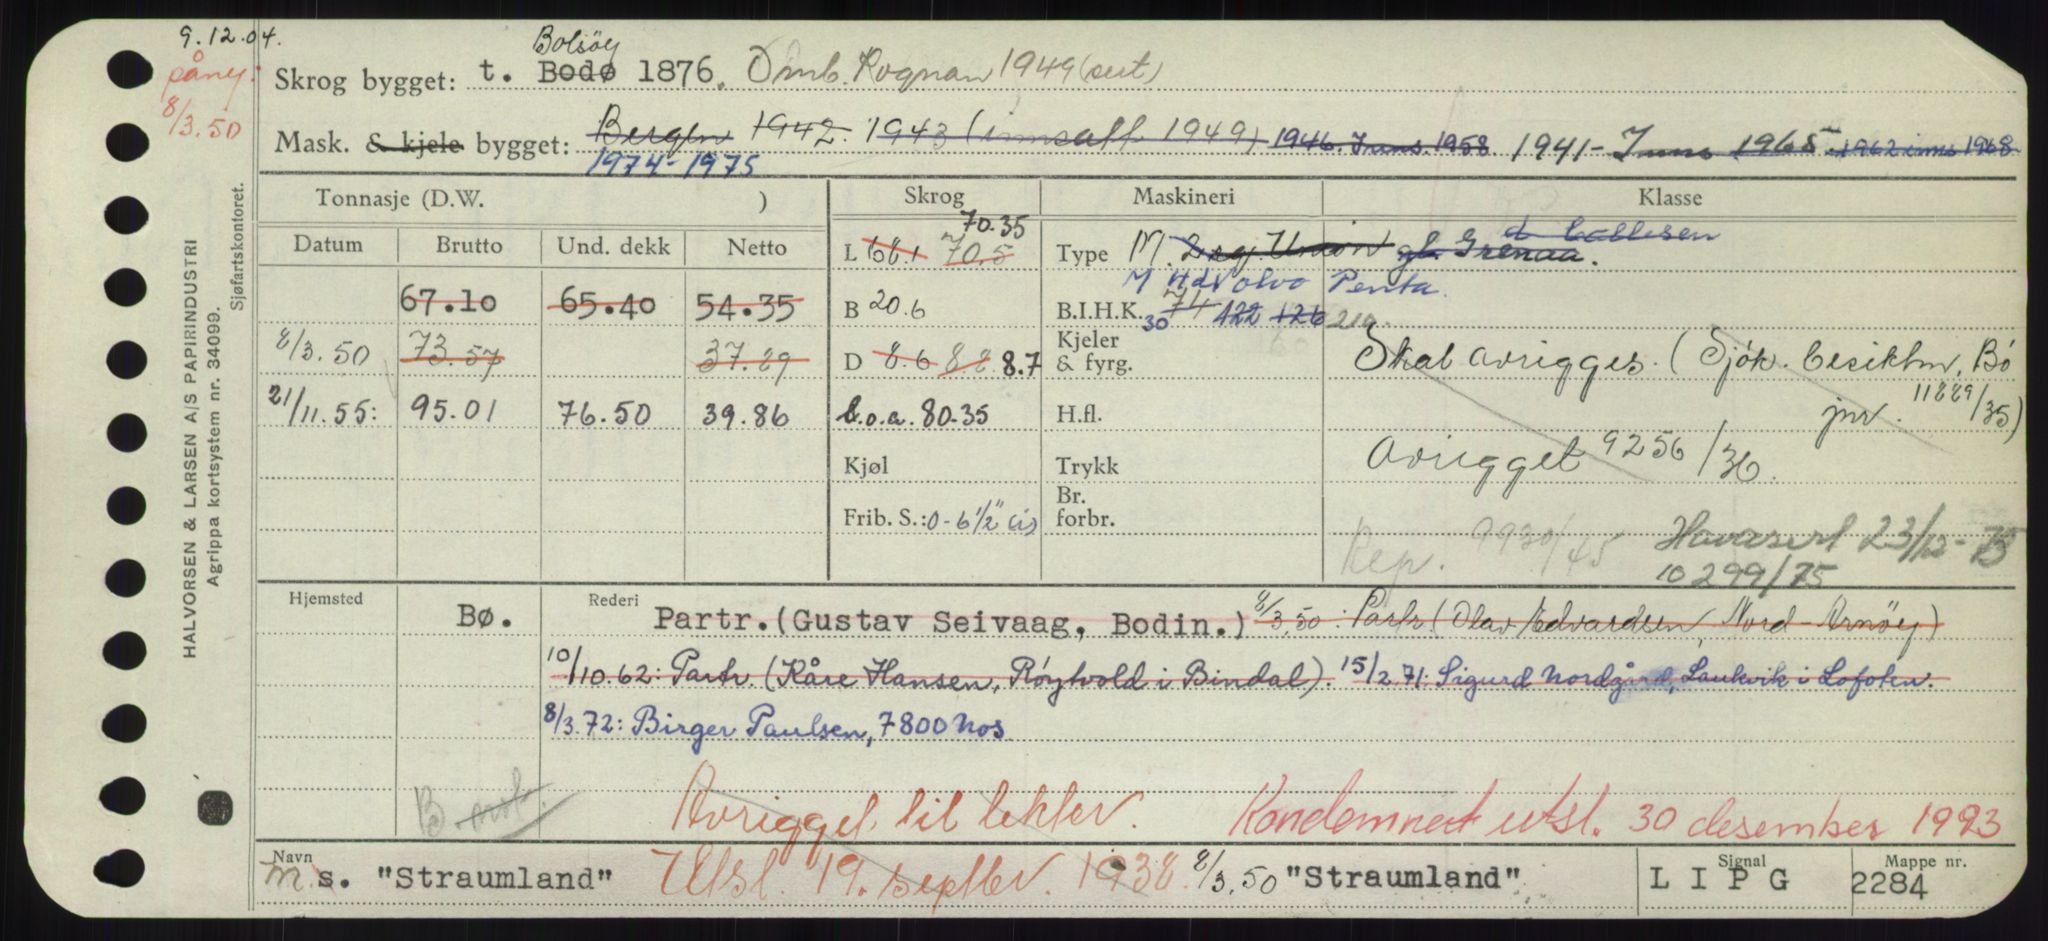 9.12.04.
påny.
8/3.50
Bolsöy
Skrog bygget: t. Bodø 1876. Omb. Rognan 1949 (sert)
Mask. & kjele bygget: Bergen 1942. 1943 (innsatt 1949) 1946. Inns. 1958 1941- Inns 1965 1962 inns 1968
1974-1975
Tonnasje (D.W. ) Skrog Maskineri Klasse
Datum Brutto Und. dekk Netto
70.35
L 68.1 70.5 Type M. Union gl. Grenaa. d
M Hd Volvo Penta.
67.10 65.40 54.35 B 20.6 B.I.H.K. 74 30 122 126 210.
8/3.50 73.57 37.29 D 8.6 8.8 8.7 Kjeler & fyrg.
Skal avrigges. (Sjök. besiktm, Bö
jnr. 11889/35)
21/11.55: 95.01 76.50 39.86 L.o.a. 80.35 H.fl.
Avrigget 9256/36.
Kjøl Trykk
Frib. S.: 0-6 1/2" (is) Br. forbr.
Rep. 9930/45 Havarert 23/12-75
10299/75
Hjemsted Bø. Rederi Partr. (Gustav Seivaag, Bodin.) 8/3.50: Partr. (Olav Edvardsen, Nord-Arnöy)
10/10.62: Partr. (Kåre Hansen, Röytvold i Bindal). 15/2.71: Sigurd Nordgård, Laukvik i Lofoten.
8/3.72: Birger Paulsen, 7800 Nos
B.
Avrigget til lekter. Kondemnert utsl. 30 desember 1993
Navn m. s. "Straumland" Utsl. 19. septbr. 1938. 8/3.50 "Straumland" Signal L I P G Mappe nr. 2284
HALVORSEN & LARSEN A/S PAPIRINDUSTRI
Agrippa kortsystem nr. 34099.
Sjøfartskontoret.